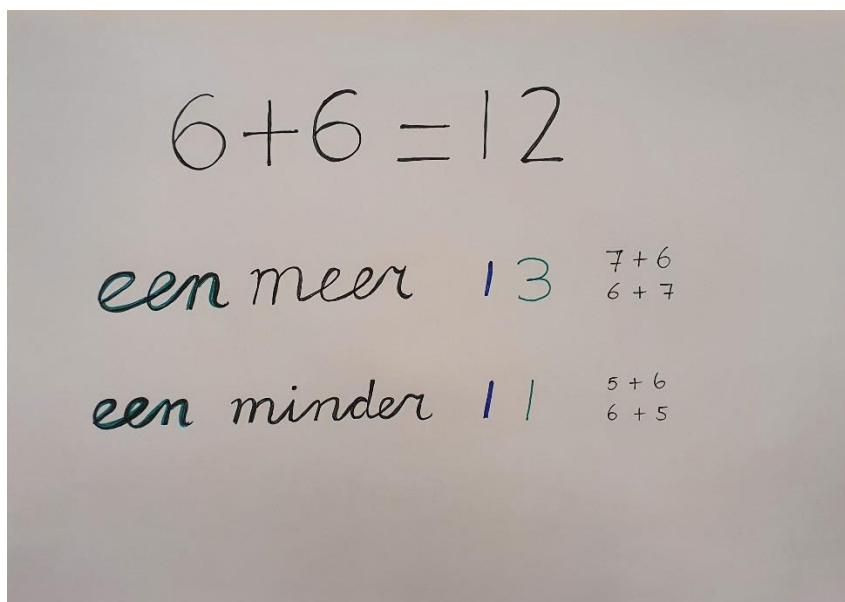 6+6=12
een meer 13 7+6
6+7
een minder 11 5+6
6+5